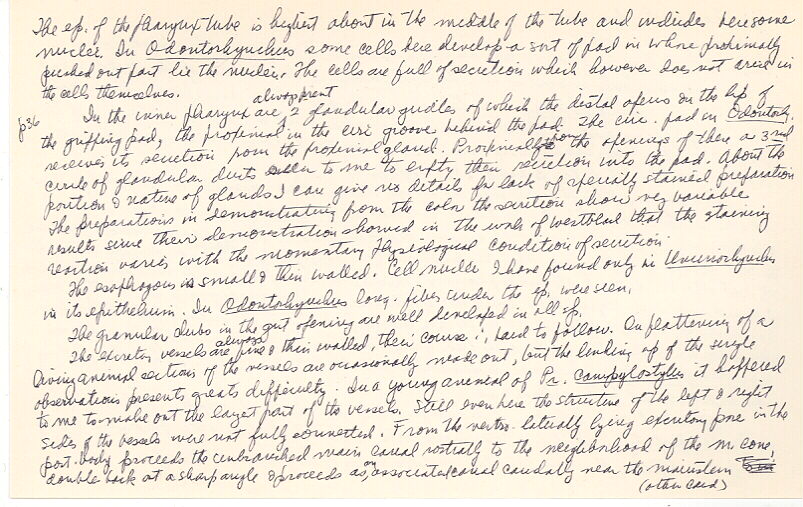 The ep. of the pharynx tube is highest about in the middle of the tube and includes here some
nuclei. In Odontorhynchus some cells here develop a sort of pad in whose proximally
pushed out part lie the nuclei. The cells are full of secretion which however does not arise in
the cells themselves.
always present
p36 In the inner pharynx are 2 glandular girdles of which the distal opens on the lip of
the gripping pad, the proximal in the circ groove behind the pad. The circ. pad in Odontorh.
receives its secretion from the proximal gland. Proximally from the openings of these a 3rd
circle of glandular ducts seem to me to empty their secretion into the pad. About the
portion & nature of glands I can give no details for lack of specially stained preparation
The preparations in demonstrating from the color the secretion show very variable
results since their demonstration showed in the work of Westblad that the staining
reaction varies with the momentary physiological condition of secretion
The esophagous is small & thin walled. Cell nuclei I have found only in Uncinorhynchus
in its epithelium. In Odontorhynchus long. fibers under the ep. were seen.
The granular clubs in the gut opening are well developed in all sp.
always
The excretory vessels are fine & thin walled, their course is hard to follow. On flattening of a
living animal sections of the vessels are occasionally made out, but the linking up of the single
observations presents great difficulty. In a young animal of Pr. campylostylus it happened
to me to make out the largest part of the vessels. Still even here the structure of the left & right
sides of the vessels were not fully connected. From the ventro-laterally lying excretory pore in the
post. body proceeds the unbranched main canal rostrally to the neighborhood of the m. cone,
double back at a sharp angle & proceeds as an associated canal caudally near the mainstem
(other card)